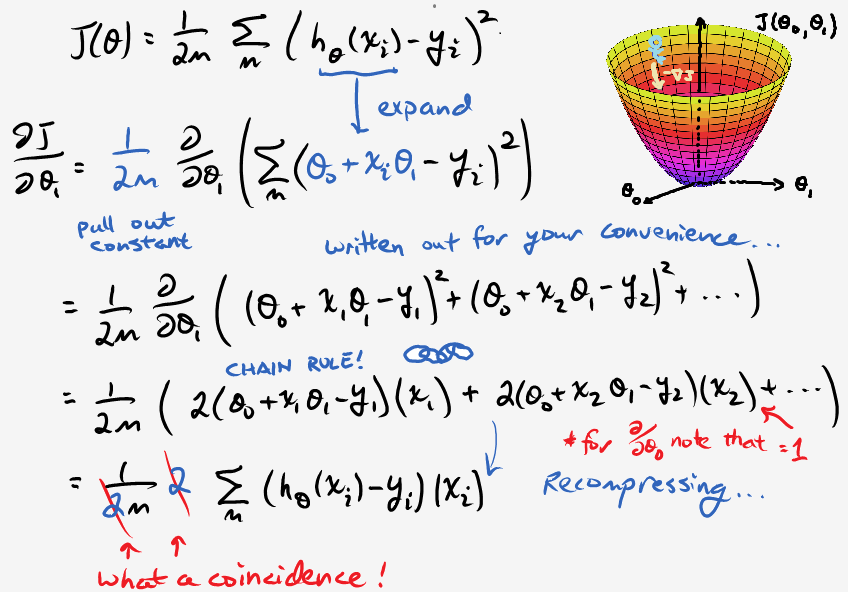 J(θ) = 1/2m Σ_m (h_θ(x_i) - y_i)^2
J(θ₀, θ₁)
-∇J
θ₀
θ₁
expand
∂J/∂θ₁ = 1/2m ∂/∂θ₁ (Σ_m (θ₀ + x_i θ₁ - y_i)^2)
pull out
constant
written out for your convenience...
= 1/2m ∂/∂θ₁ ((θ₀ + x₁θ₁ - y₁)^2 + (θ₀ + x₂θ₁ - y₂)^2 + ....)
CHAIN RULE!
= 1/2m (2(θ₀ + x₁θ₁ - y₁)(x₁) + 2(θ₀ + x₂θ₁ - y₂)(x₂) + ...)
* for ∂/∂θ₀ note that = 1
= 1/2m 2 Σ_m (h_θ(x_i) - y_i)(x_i)
Recompressing...
what a coincidence!